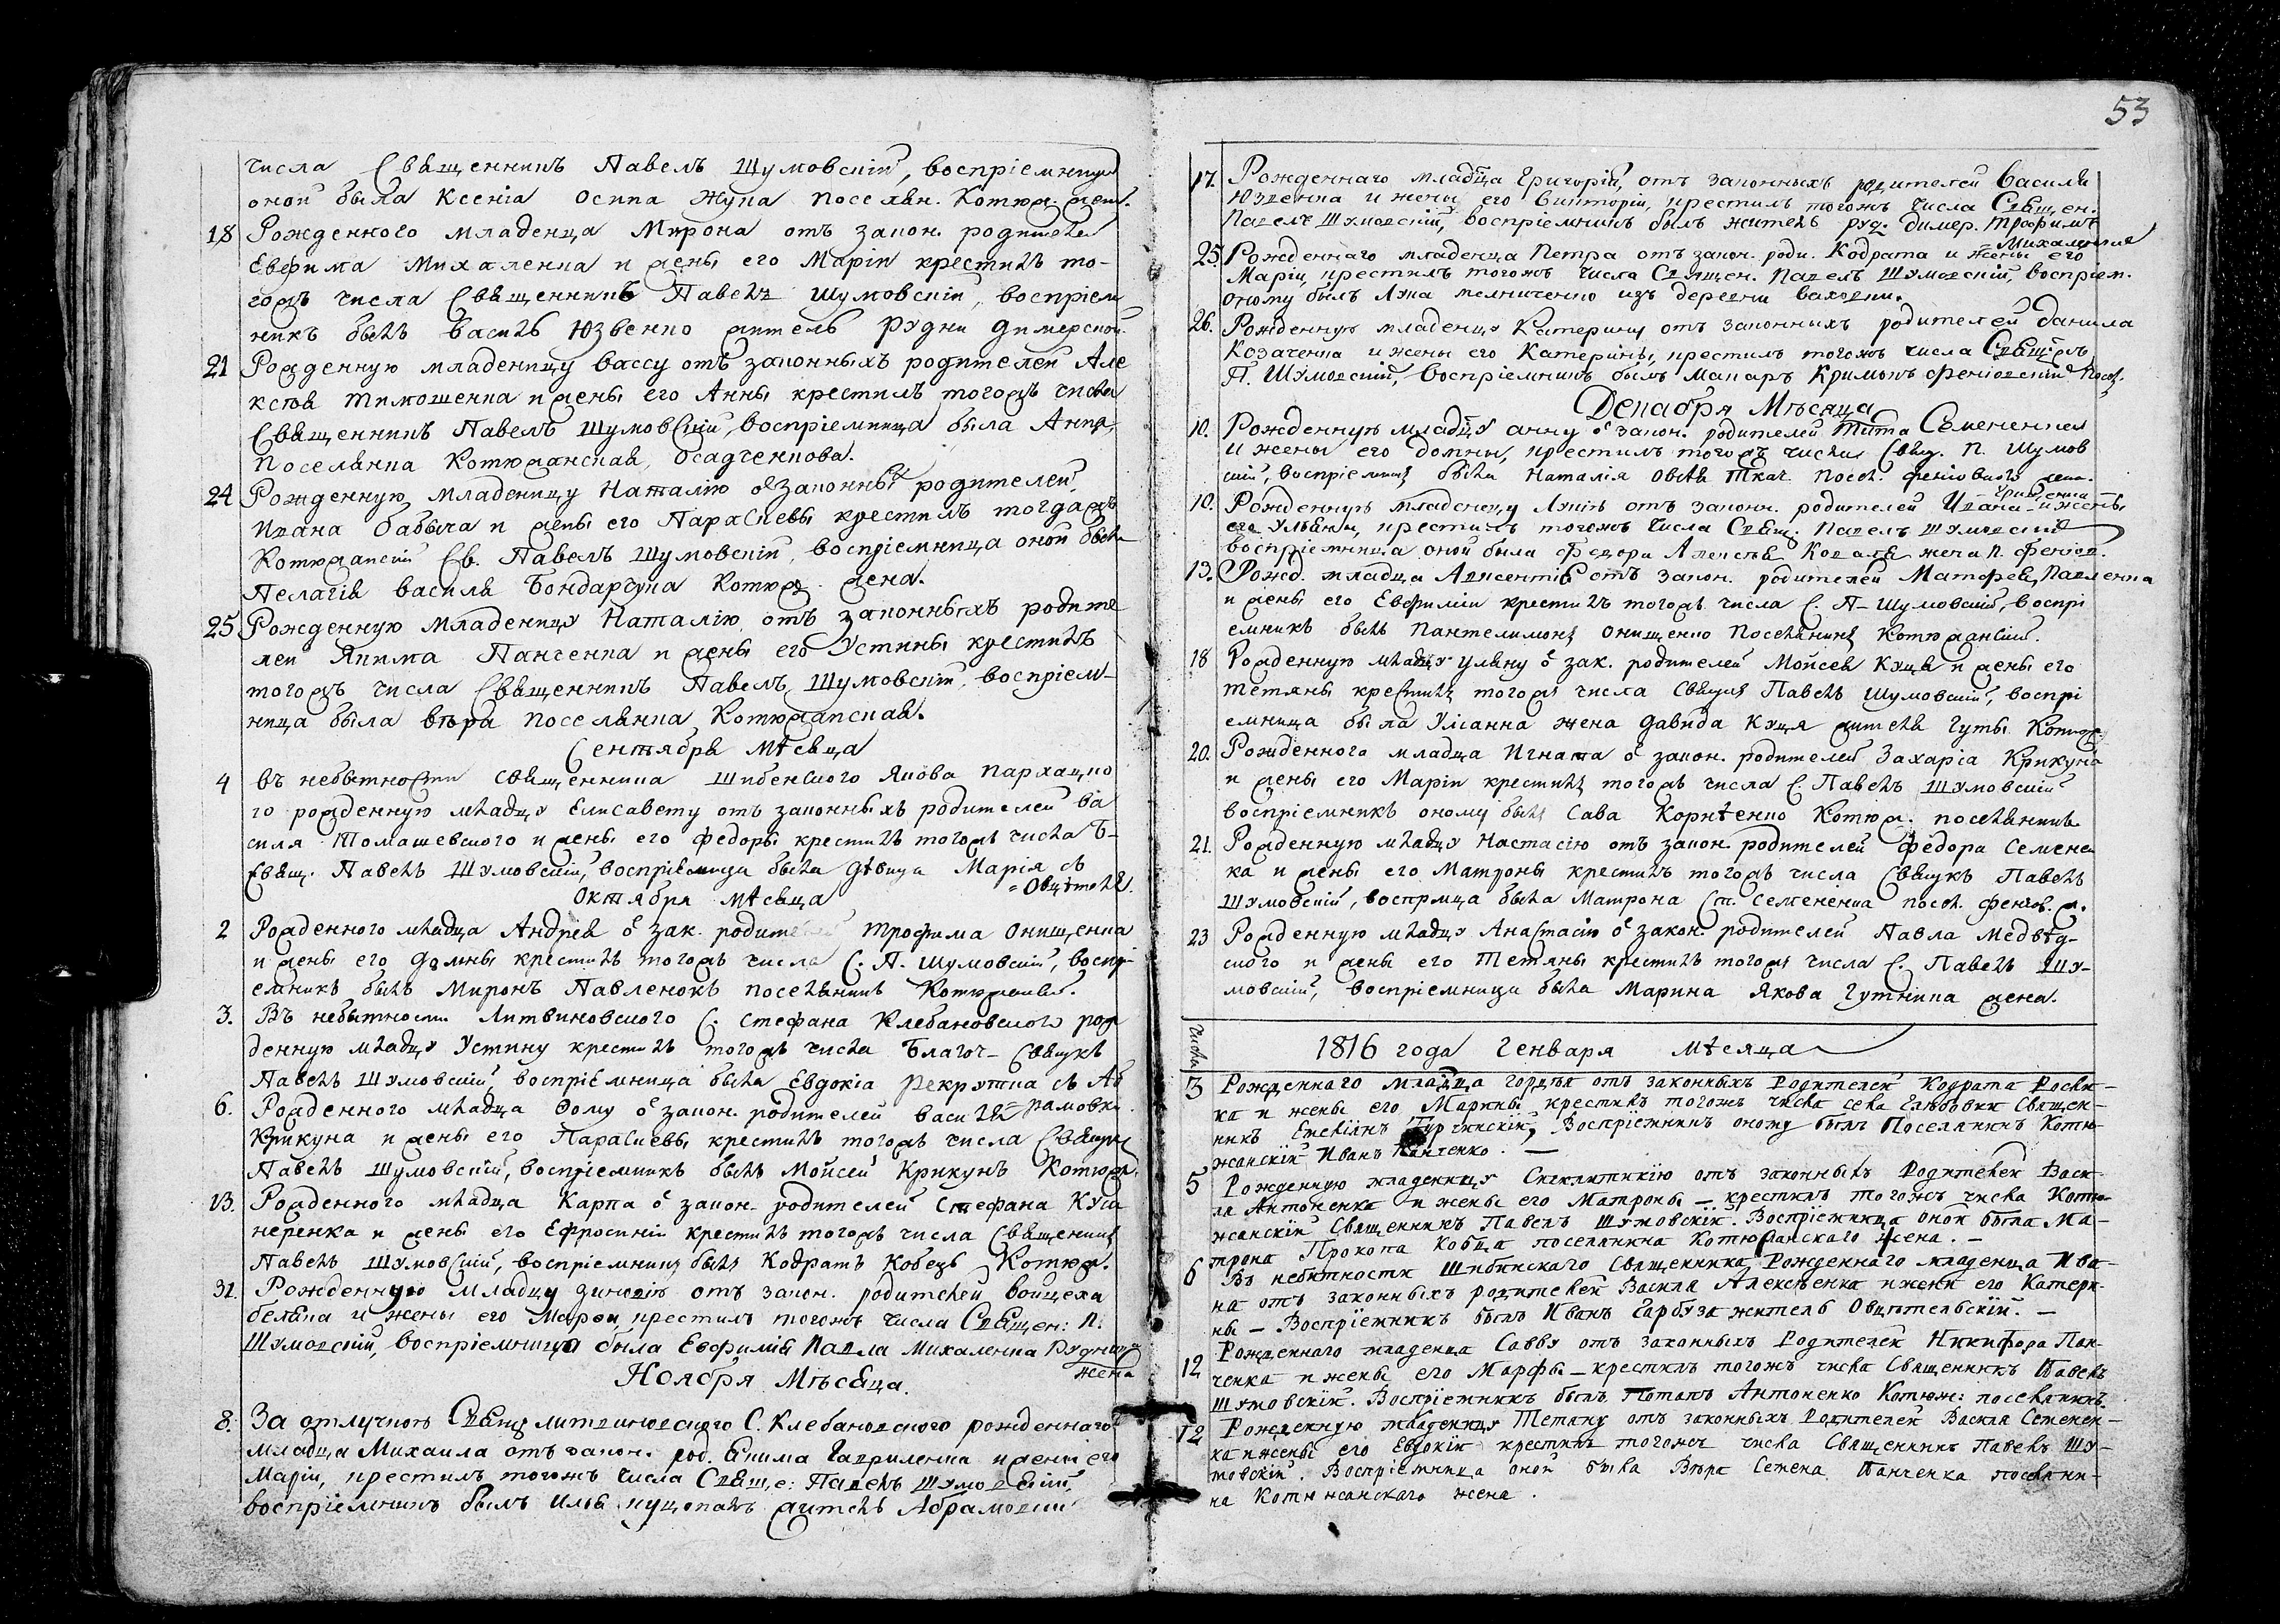 числа Священникъ Павелъ Шумовскій, воспріемница
оной была Ксеніа Осипа Жука поселян. Котюж. жен.
18 Рожденного младенца Мирона отъ закон. родителей
Евфима Михаленка и жены его Маріи крестилъ то-
гожъ числа Священникъ Павелъ Шумовскій, воспріем
никъ былъ Василь Юзвенко житель Рудни Димерской.
21 Рожденную младеницу Вассу отъ законныхъ родителей Але
ксѣя Тимошенка и жены его Анны крестилъ тогожъ числа
Священникъ Павелъ Шумовскій, воспріемница была Анна,
поселянка Котюжанская, Осадченкова.
24 Рожденную младеницу Наталію ѿ законны родителей
Ивана Бабыча и жены его Параскевы крестилъ тогдажъ
Котюжанскій Св. Павелъ Шумовскій, воспріемница оной была
Пелагія Василя Бондарчука Котюж. жена.
25 Рожденную младеницу Наталію отъ законныхъ родите
лей Якима Панченка и жены его Устины крестилъ
тогожъ числа Священникъ Павелъ Шумовскій, воспріем-
ница была Вѣра поселянка Котюжанская.
Сентября мѣсяца
4 Въ небытности священника Шибенского Якова Пархацко
го рожденную младцу Елисавету отъ законныхъ родителей Ва
силя Томашевского и жены его Федоры крестилъ тогожъ числа Б-
Свящ. Павелъ Шумовскій, воспріемница была дѣвица Марія съ
= Овцѣтеля.
Октября мѣсяца
2 Рожденного младца Андрея ѿ зак. родителей Трофима Онищенка
и жены его Домны крестилъ тогожъ числа С. П. Шумовскій, воспрі-
емникъ былъ Миронъ Павленокъ поселянинъ Котюжанскій.
3. Въ небытности Литвиновского С. Стефана Клебановского рож
денную младцу Устину крестилъ тогожъ числа Благоч- Свящнкъ
Павелъ Шумовскій, воспріемница была Евдокіа рекрутка съ Аб
рамовки.
6. Рожденного младца Фому ѿ закон. родителей Василя
Крикуна и жены его Параскевы крестилъ тогожъ числа Свящнкъ
Павелъ Шумовскій, воспріемникъ былъ Мойсей Крикунъ Котюж.
13. Рожденного младца Карпа ѿ закон. родителей Стефана Куш
неренка и жены его Ефросиніи крестилъ тогожъ числа Священикъ
Павелъ Шумовскій, воспріемникъ былъ Кодратъ Кобецъ Котюж.
31. Рожденную младцу Зиновію отъ закон. родителей Войцеха
Беляка и жены его Марфы, крестилъ тогожъ числа Священ: П.
Шумовскій, воспріемница была Евфимія Павла Михаленка Рудницк
жена
Ноября Мѣсяца.
8. За отлучкою Свящ Литвиновского С. Клебановского рожденнаго
младца Михаила отъ закон. род. Якима Гавриленка и жени его
Маріи, крестилъ тогожъ числа Свяще: Павелъ Шумовскій,
воспріемникъ былъ Илія Куцопалъ житель Абрамовскій
53
17. Рожденнаго младца Григорій, отъ законныхъ родителей Василя
Юзвенка и жены его Викторіи, крестилъ тогожъ числа Священ.
Павелъ Шумовскій, воспріемникъ былъ житель руд. димер. Трофимъ
= Михаленко
25. Рожденнаго младенца Петра отъ закон. роди. Кодрата и жены его
Маріи, крестилъ тогожъ числа Священ. Павелъ Шумовскій, воспріем.
оному былъ Лука мелниченко изъ деревни Ваховки.
26. Рожденную младенцу Катерину отъ законныхъ родителей Данила
Козаченка и жены его Катерины, крестилъ тогожъ числа Свящ:
П. Шумовскій, воспріемникъ былъ Макаръ Кримокъ феніовскій посел.
Декабря Мѣсяца
10. Рожденную младцу Анну ѿ закон. родителей Тита Семененка
и жены его Домны, крестилъ тогожъ числа Свящ. П. Шумов
скій, воспріемница была Наталія Овсѣя Ткач. посел. феніовског жена.
10. Рожденную младеницу Лукію отъ закон. родителей Ивана Грищенка и жены
его Ульяны, крестилъ тогожъ числа Свящ. Павелъ Шумовскій
воспріемница оной была Федора Алексѣя Коваля жена п. Феніов.
13. Рожд. младца Авксентія отъ закон. родителей Матфея Павленка
и жены его Евфиміи крестилъ тогожъ числа С. П- Шумовскій, воспрі
емникъ былъ Пантелимонъ Онищенко поселянинъ Котюжанскій.
18 Рожденную младцу Уляну ѿ зак. родителей Мойсея Куця и жены его
Тетяны крестилъ тогожъ числа Свящнкъ Павелъ Шумовскій, воспрі
емница была Уліанна жена Давида Куця жителя Гуты Котюж.
20. Рожденного младца Игната ѿ закон. родителей Захаріа Крикуна
и жены его Маріи крестилъ тогожъ числа С. Павелъ Шумовскій
воспріемникъ оному былъ Сава Корнѣенко Котюж. поселянинъ
21. Рожденную младцу Настасію отъ закон. родителей Федора Семенен
ка и жены его Матроны крестилъ тогожъ числа Свящнкъ Павелъ
Шумовскій, воспрница была Матрона Ст. Семененка посел. феніов. ж.
23 Рожденную младцу Анастасію ѿ закон. родителей Павла Медвѣд-
ского и жены его Тетяны крестилъ тогожъ числа С. Павелъ Шу-
мовскій, воспріемница была Марина Якова Гутника жена.
Числа
1816 года Генваря мѣсяца
3 Рожденнаго младца Гордѣя отъ законныхъ Родителей Кодрата Росли-
ка и жены его Марины крестилъ тогожъ числа села Глѣбовки Священ-
никъ Емеліанъ Турчинскій, Воспріемникъ оному былъ Поселянинъ Котю-
жанскій Иванъ Панченко. —
5 Рожденную младеницу Синклитикію отъ законныхъ Родителей Васи-
ля Антоненка и жены его Матроны — крестилъ тогожъ числа Котю-
жанскій Священникъ Павелъ Шумовскій. Воспріемница оной была Ма-
трона Прокопа Кобца поселянина Котюжанскаго жена. —
6 Въ небытности Шибинскаго Священника, Рожденнаго младенца Ива-
на отъ законныхъ родителей Василя Алексѣенка и жени его Катери-
ны — Воспріемникъ былъ Иванъ Гарбуза житель Овцѣтельскій. —
12 Рожденнаго младенца Савву отъ законныхъ Родителей Никифора Пан-
ченка и жены его Марфы — крестилъ тогожъ числа Священникъ Павелъ
Шумовскій. Воспріемникъ былъ Потапъ Антоненко Котюж: поселянинъ.
12 Рожденную младеницу Тетяну отъ законныхъ Родителей Василя Семенен-
ка и жены его Евдокіи крестилъ тогожъ числа Священникъ Павелъ Шу-
мовскій. Воспріемница оной была Вѣра Семена Панченка поселяни-
на Котюжанскаго жена.